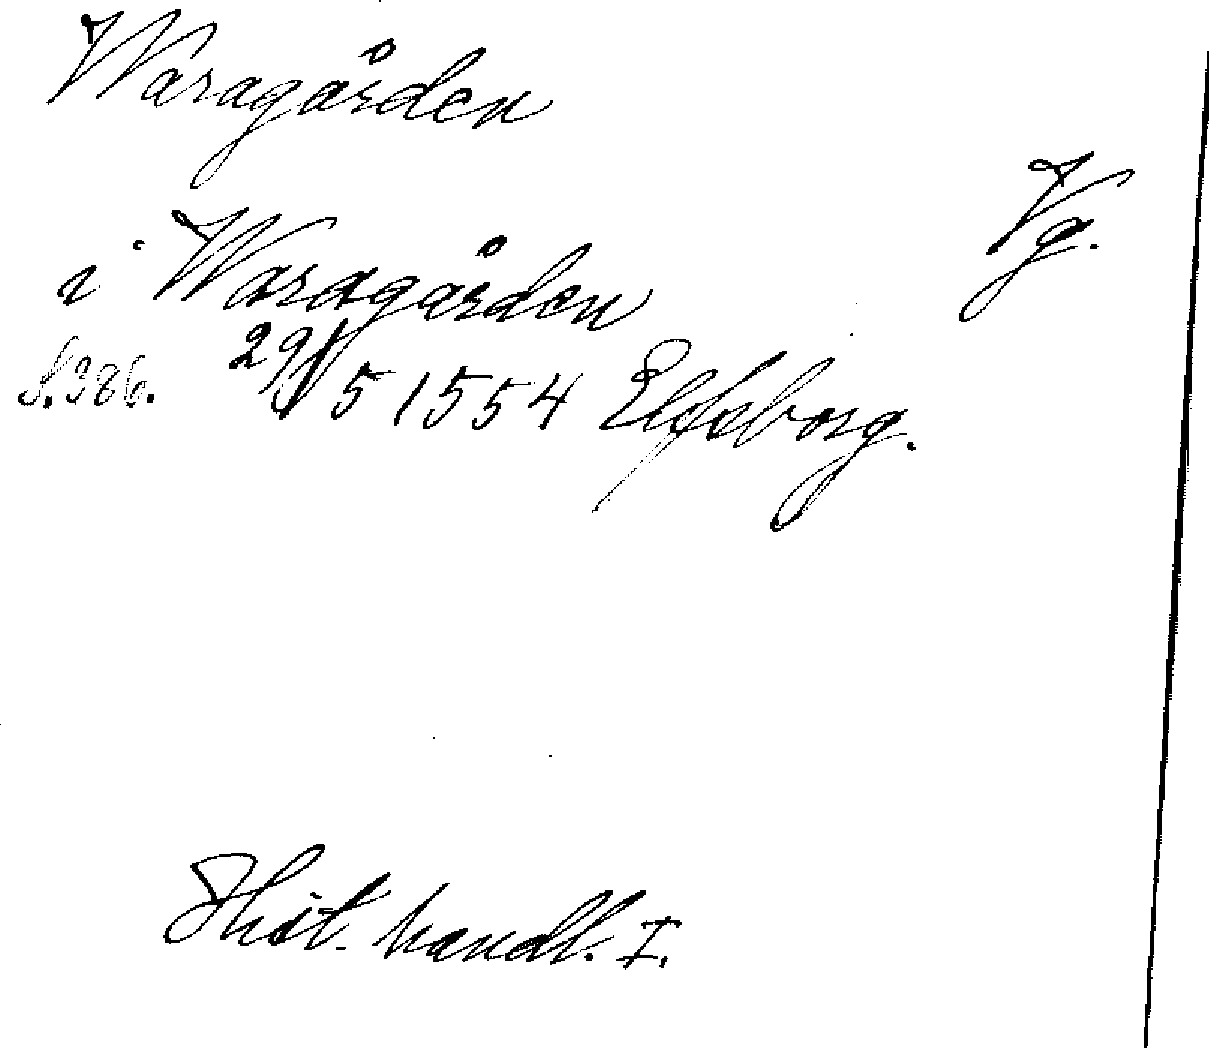 Waragården
Vg.
i Waragården
S. 386. 29/5 1554 Elfsborg.
Hist. handl. I.